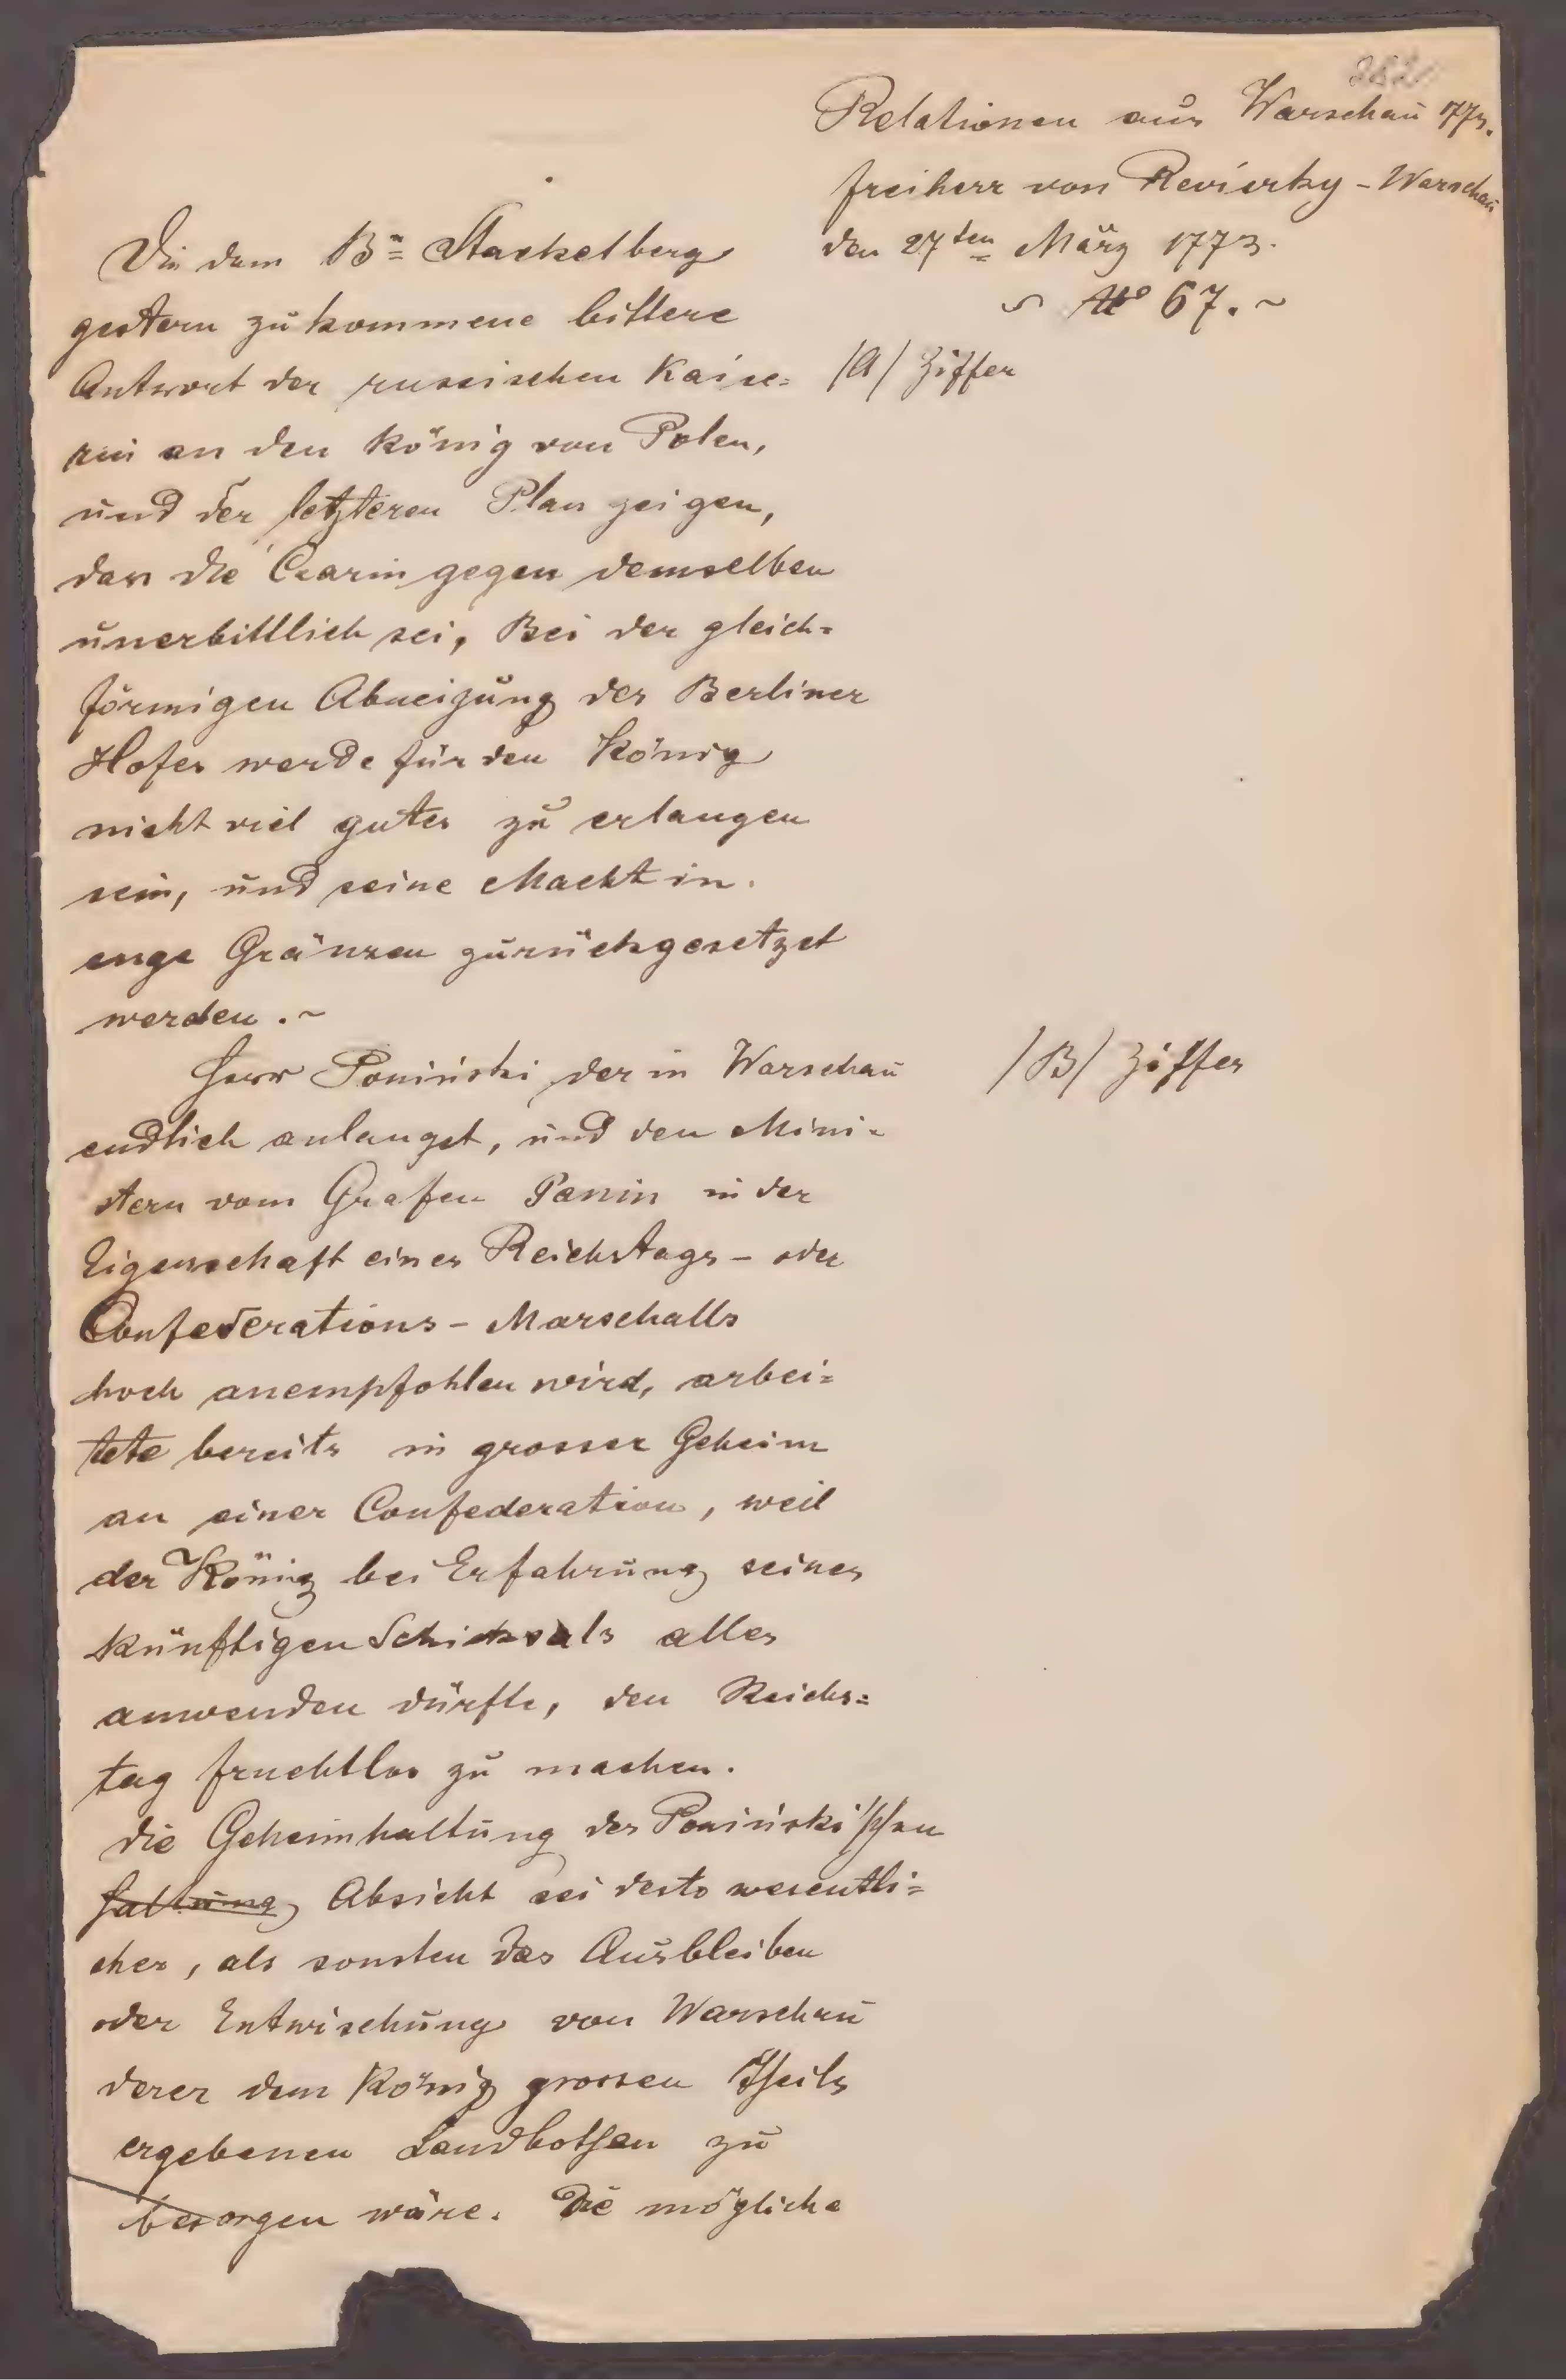 Relationen aus Warschau 773.
freiherr von Revierky - Warschau
den 27ten März 1773.
No 67. ~
/A/ Ziffer
Die dem Bn= Stackelberg
gestern zukommene bittere
Antwort der russischen Kaise=
rin an den König von Polen,
und der letzteren Plan zeigen,
dass die Czarin gegen demselben
unerbittlich sei, Bei der gleich=
förmigen Abneigung des Berliner
Hofes werde für den König
nicht viel gutes zu erlangen
sein, und seine Macht in
enge Gränzen zurückgesetzet
werden. ~
/B/ Ziffer
Herr Poniński, der in Warschau
endlich anlanget, und den Mini=
stern vom Grafen Panin in der
Eigenschaft eines Reichstags - oder
Confederations - Marschalls
hoch anempfohlen wird, arbei=
tete bereits in grosser Geheim
an einer Confederation, weil
der König bei Erfahrung seines
künftigen Schicksals alles
anwenden dürfte, den Reichs=
tag fruchtlos zu machen.
die Geheimhaltung der Poniński'schen
haltung Absicht sei desto wesentli=
cher, als sonsten das Ausbleiben
oder Entwischung von Warschau
derer dem König grossen Theils
ergebenen Landbothen zu
besorgen wäre. Die mögliche